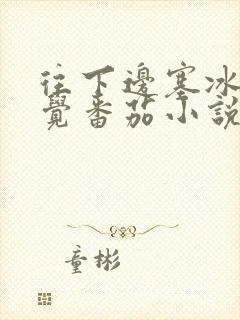 往下邊塞冰
覺番茄小說
童彬